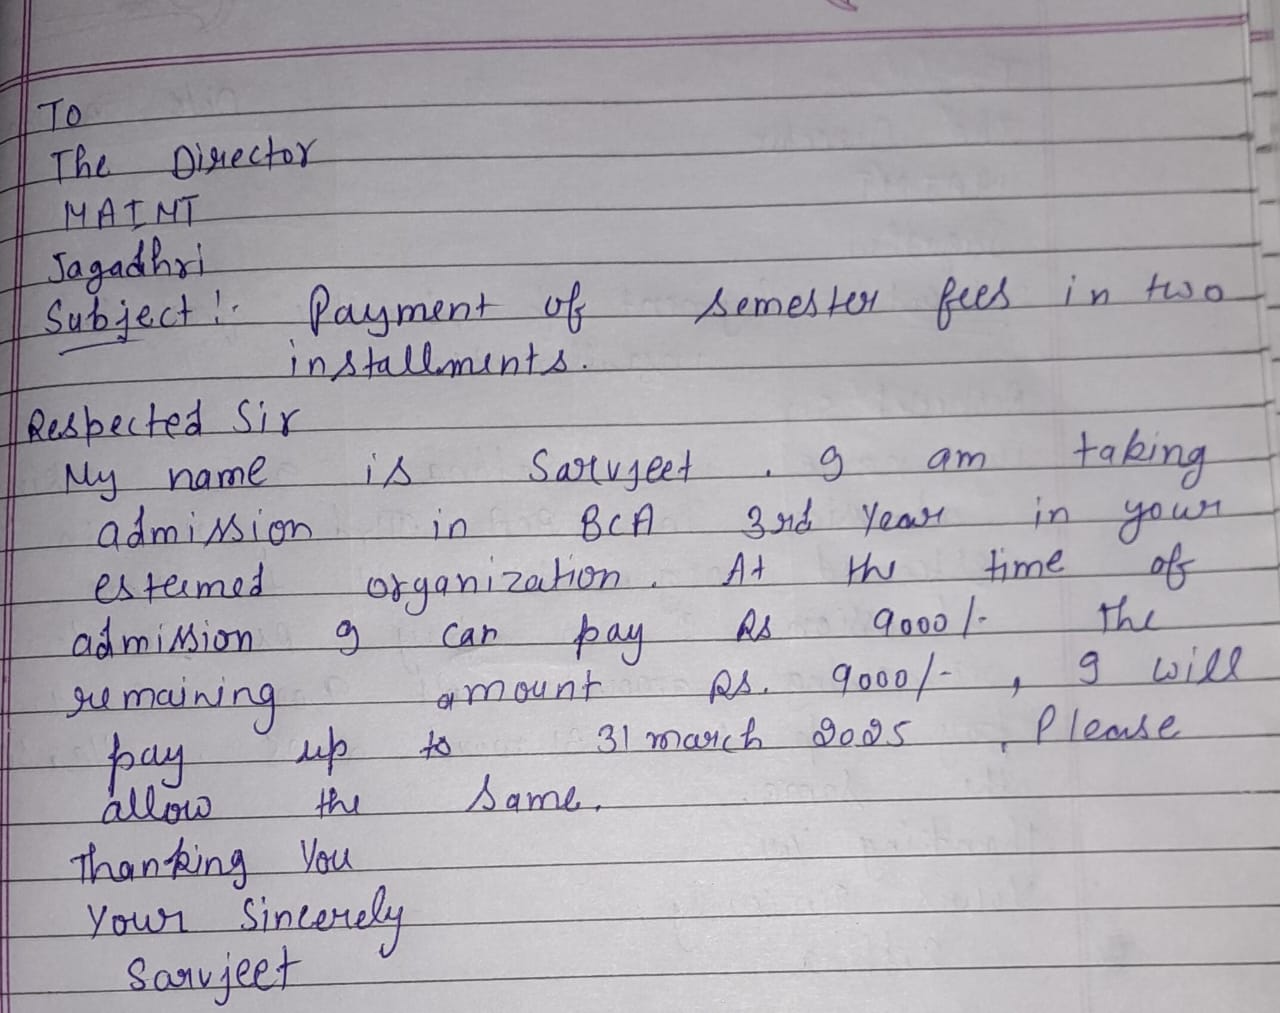 To
The Director
MAIMT
Jagadhri
Subject :- Payment of semester fees in two
installments.
Respected Sir
My name is Sarvjeet . I am taking
admission in BCA 3rd Year in your
esteemed organization . At the time of
admission I can pay Rs 9000/- The
remaining amount Rs. 9000/- , I will
pay up to 31 march 2025 , Please
allow the same.
Thanking You
Your Sincerely
Sarvjeet